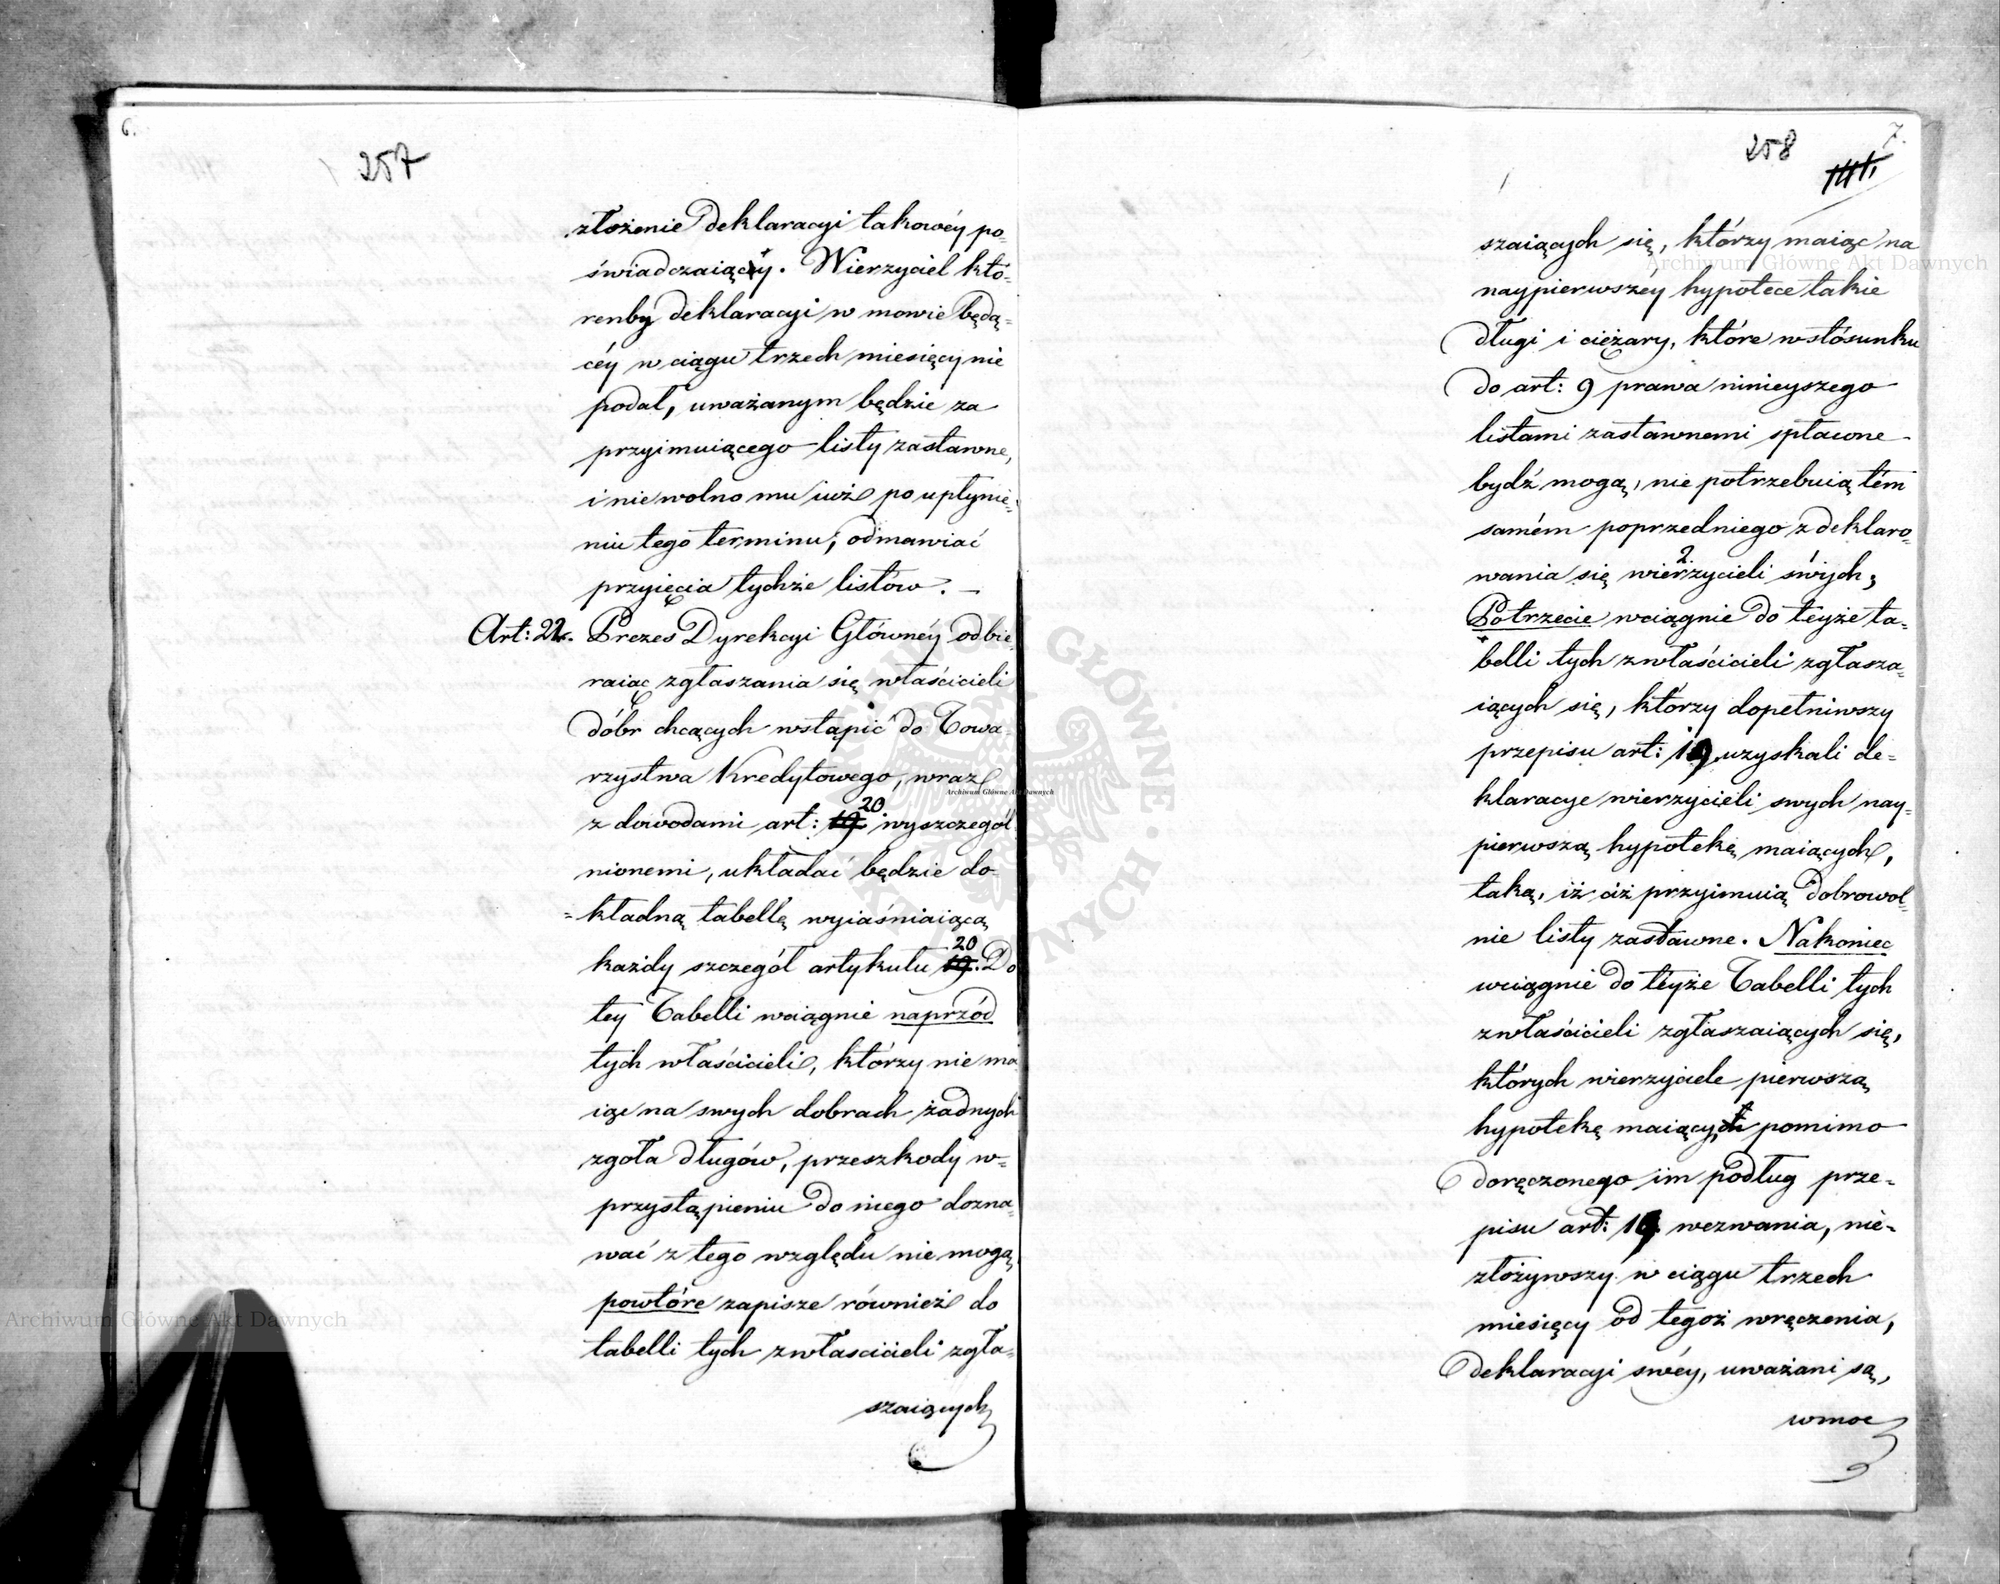 6.
257
złożenie deklaracyi takowéy po-
świadczaiącéy. Wierzyciel któ-
renby deklaracyi w mowie będą-
céy w ciągu trzech miesięcy nie
podał, uważanym będzie za
przyimuiącego listy zastawne,
i nie wolno mu iuż po upłynie-
niu tego terminu, odmawiać
przyięcia tychże listów. –
Art: 22. Prezes Dyrekcyi Głównéy odbie-
raiąc zgłaszania się właścicieli
dóbr chcących wstąpić do Towa-
rzystwa Kredytowego, wraz
z dowodami art: 19 20 wyszczegól
nionemi, układać będzie do-
=kładną tabellę wyiaśniaiącą
każdy szczegół artykułu 19. 20 Do
tey Tabelli wciągnie naprzód
tych właścicieli, którzy nie ma
iąc na swych dobrach żadnych
zgoła długów, przeszkody w-
przystąpieniu do niego dozna-
wać z tego względu nie mogą
powtóre zapisze również do
tabelli tych z właścicieli zgła-
szaiących
7.
258
szaiących się, którzy maiąc na
naypierwszéy hypotece takie
długi i ciężary, które w stósunku
do art: 9 prawa ninieyszego
listami zastawnemi spłacone
bydź mogą, nie potrzebuią tém
samém poprzedniego zdeklaro-
wania się wierzycieli swych;
2.
Potrzecie wciągnie do teyże ta-
belli tych z właścicieli zgłasza-
iących się, którzy dopełniwszy
przepisu art: 19 uzyskali de-
klaracye wierzycieli swych nay-
pierwszą hypotekę maiących,
taką, iż ciż przyimuią dobrowol-
nie listy zastawne. Nakoniec
wciągnie do téyże Tabelli tych
z właścicieli zgłaszaiących się,
których wierzyciele pierwszą
hypotekę maiący pomimo
doręczonego im podług prze-
pisu art: 19 wezwania, nie-
złożywszy w ciągu trzech
miesięcy od tegoż wręczenia,
deklaracyi swéy, uważani są,
w moc
Archiwum Główne Akt Dawnych
Archiwum Główne Akt Dawnych
Archiwum Główne Akt Dawnych